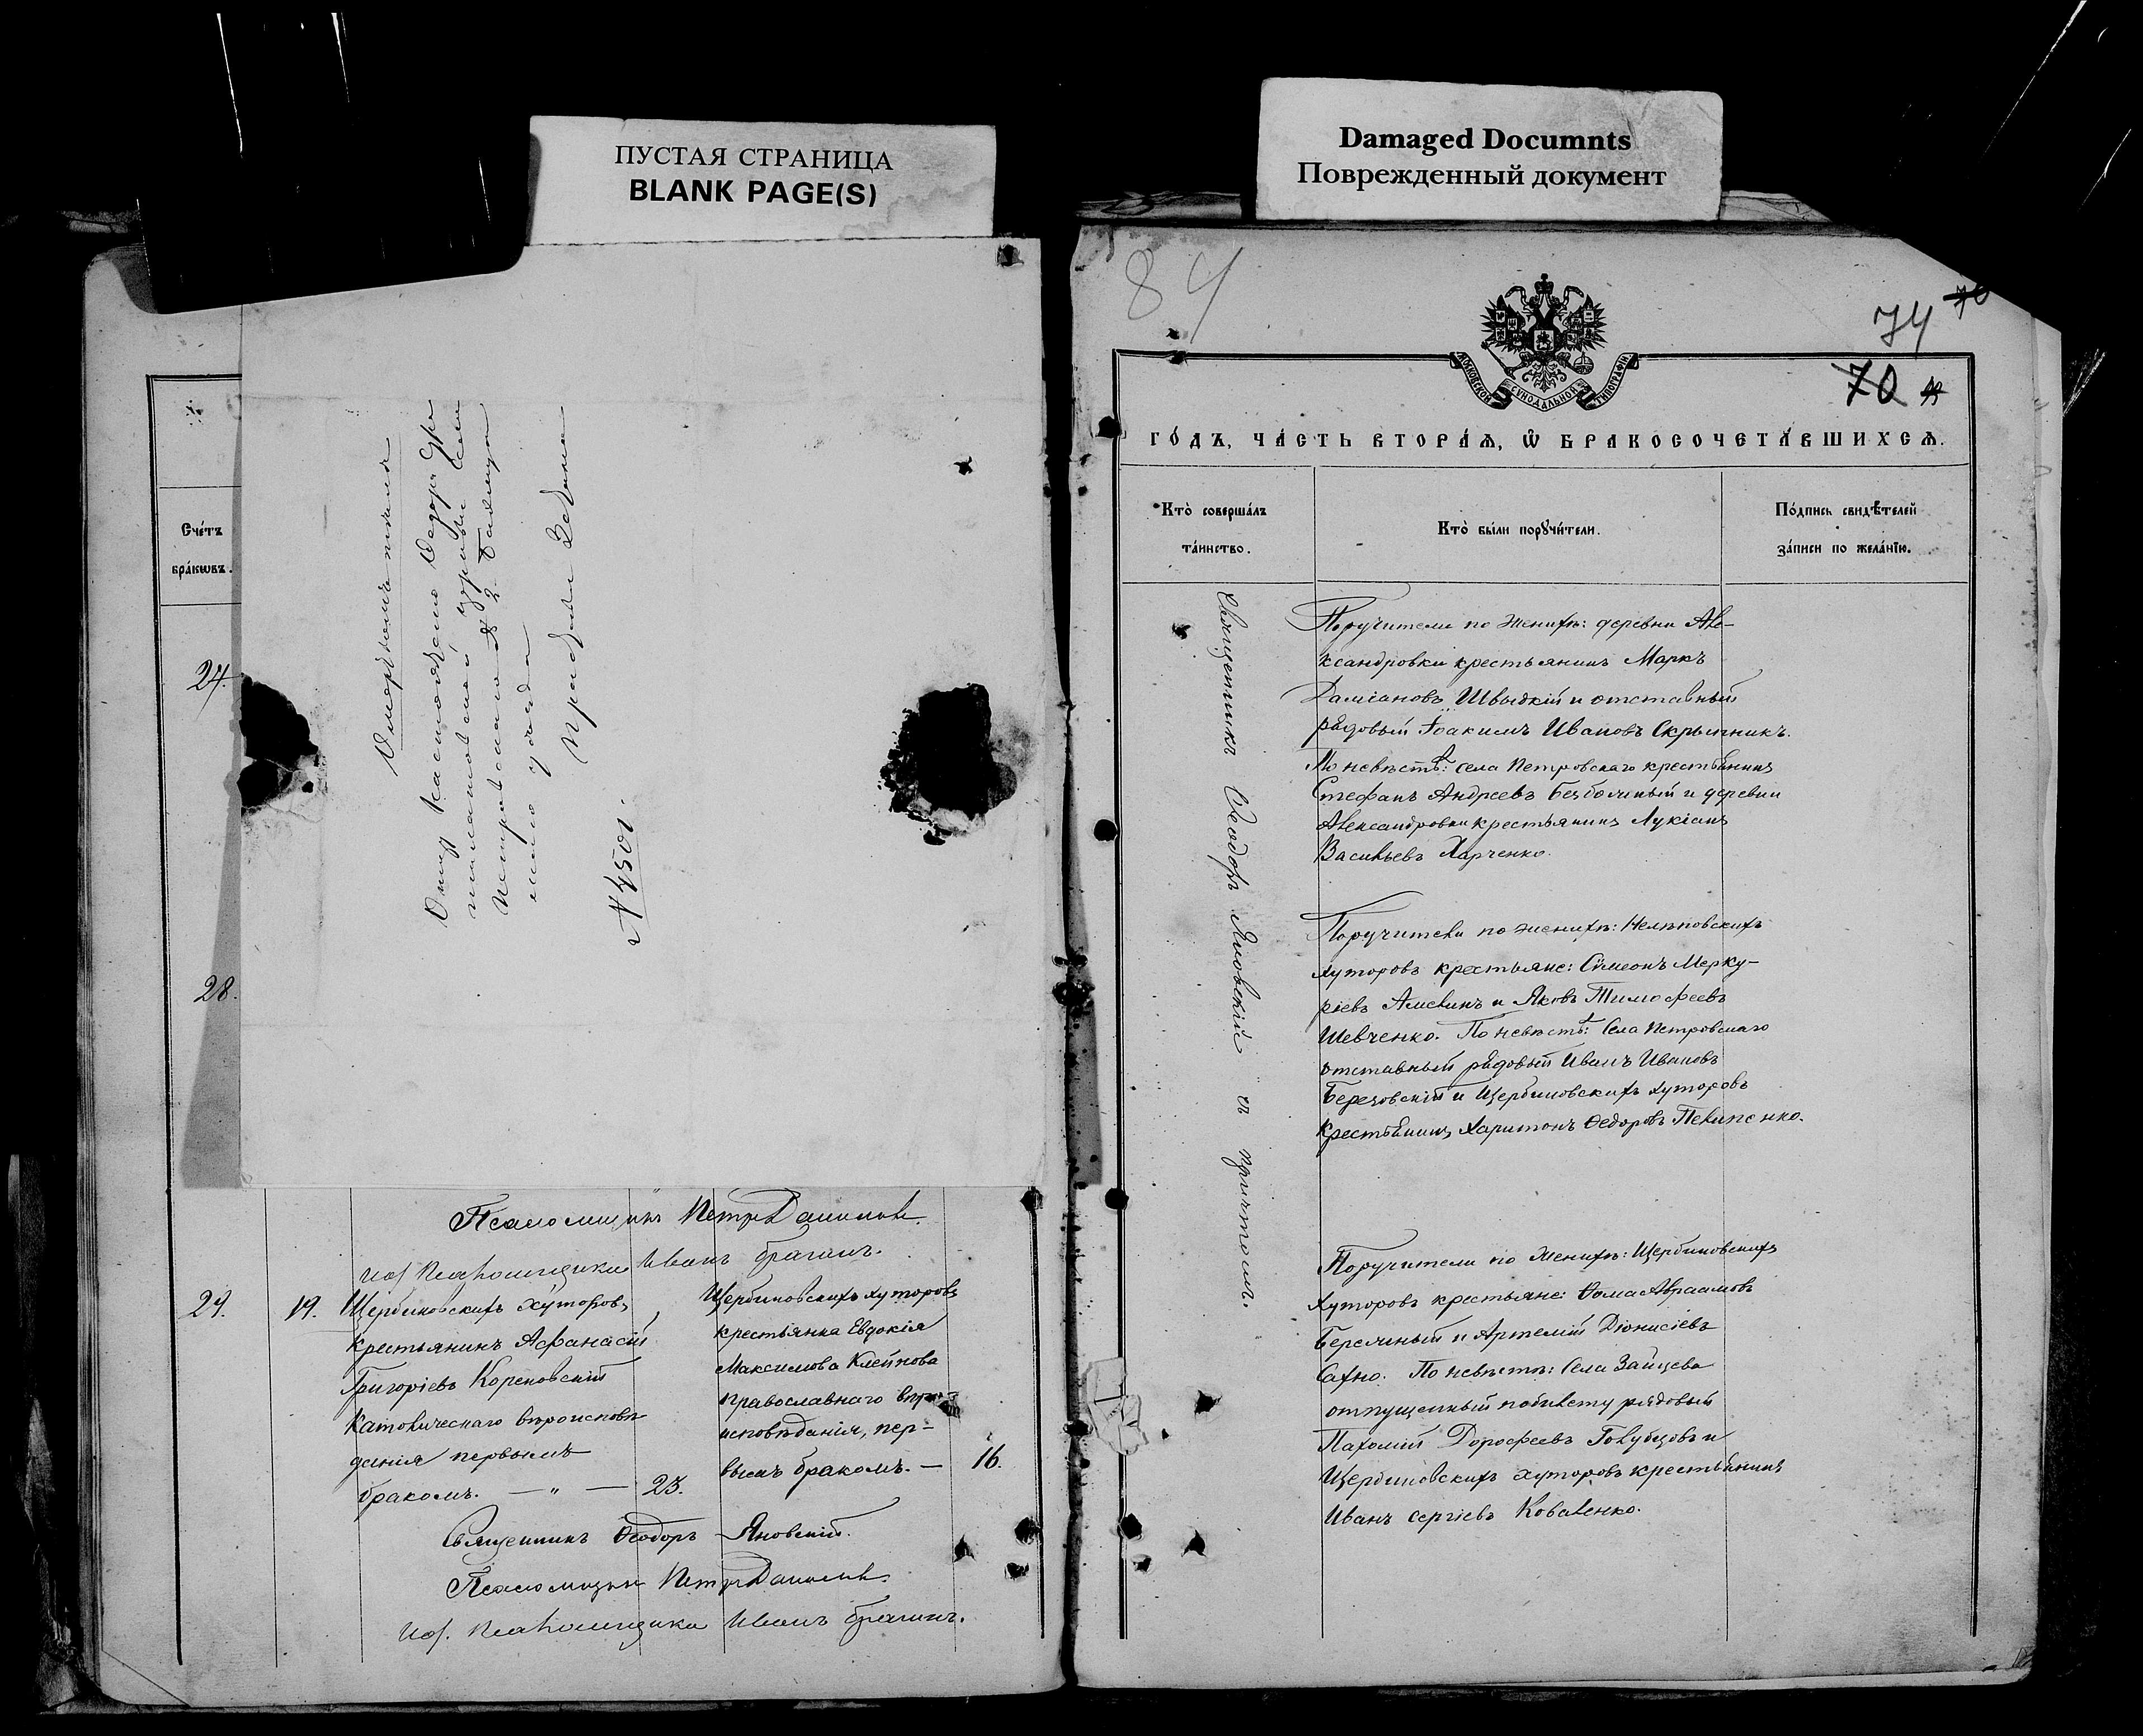 ПУСТАЯ СТРАНИЦА
BLANK PAGE(S)
Счетъ
браковъ.
27.
28.
Петровскаго
уѣзда
№ 4501.
Псаломщикъ Петръ Данилов
И. д. Псаломщика Иванъ Брагинъ.
29.
19.
Щербиновскихъ хуторовъ
крестьянинъ Аѳанасій
Григоріевъ Кореновскій
Католическаго вѣроисповѣ
данія первымъ
бракомъ. — „ —
23.
Щербиновскихъ хуторовъ
крестьянка Евдокія
Максимова Клейнова
православнаго вѣро
исповѣданія, пер-
вымъ бракомъ. —
16.
Священникъ Ѳеодоръ Яновскій.
Псаломщикъ Петръ Данилов
И. д. Псаломщика Иванъ Брагинъ.
Damaged Documnts
Поврежденный документ
84
74
70
70
МОСКОВСКОЙ СѴНОДАЛЬНОЙ ТИПОГРАФІИ
ГО́ДЪ, ЧА́СТЬ ВТОРА́Ѧ, Ѽ БРАКОСОЧЕТА́ВШИХСѦ.
Кто̀ соверша́лъ
та́инство.
Кто̀ бы́ли порꙋчи́тели.
По́дпись свидѣ́телей
за́писи по жела́нїю.
Священникъ Ѳеодоръ Яновскій съ причтомъ.
Поручители по женихѣ: деревни Але-
ксандровки крестьянинъ Маркъ
Даміановъ Швыдкій и отставный
рядовый Іоакимъ Ивановъ Скрыпникъ.
По невѣстѣ: села Петровскаго крестьянинъ
Стефанъ Андреевъ Безболный и деревни
Александровки крестьянинъ Лукіанъ
Васильевъ Харченко.
Поручители по женихѣ: Нелѣповскихъ
хуторовъ крестьяне: Сѵмеонъ Мерку-
ріевъ Амелинъ и Яковъ Тимоѳеевъ
Шевченко. По невѣстѣ: Села Петровскаго
отставный рядовый Иванъ Ивановъ
Березовскій и Щербиновскихъ хуторовъ
крестьянинъ Харитонъ Ѳедоровъ Пелипенко.
Поручители по женихѣ: Щербиновскихъ
хуторовъ крестьяне: Ѳома Авраамовъ
Беречный и Артемій Діонисіевъ
Сахно. По невѣстѣ: Села Зайцева
отпущенный по билету рядовый
Пахомій Дороѳеевъ Голубцовъ и
Щербиновскихъ хуторовъ крестьянинъ
Иванъ Сергіевъ Коваленко.